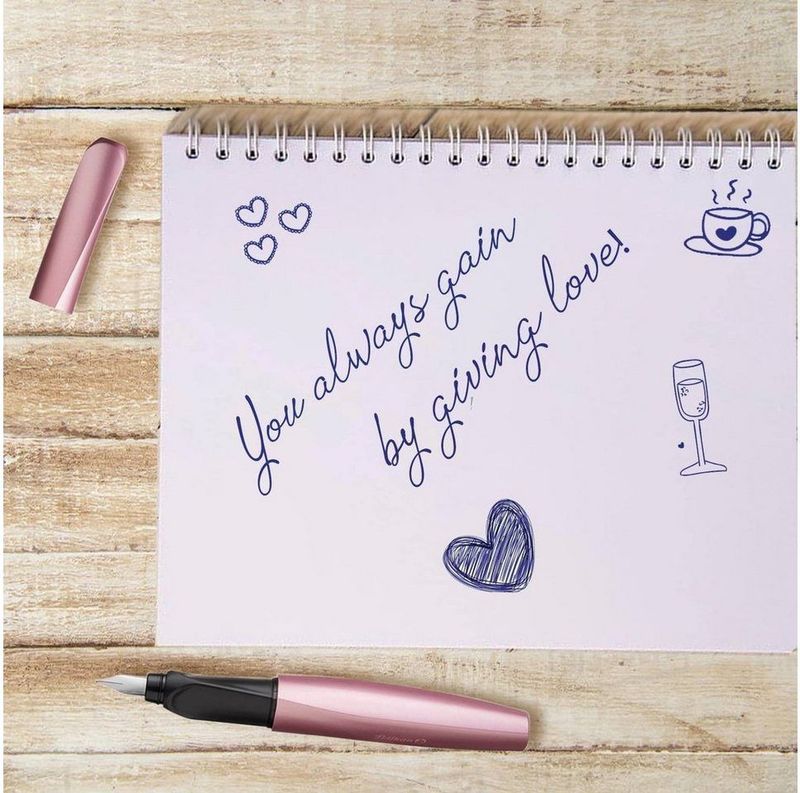 You always gain
by giving love!
Pelikan